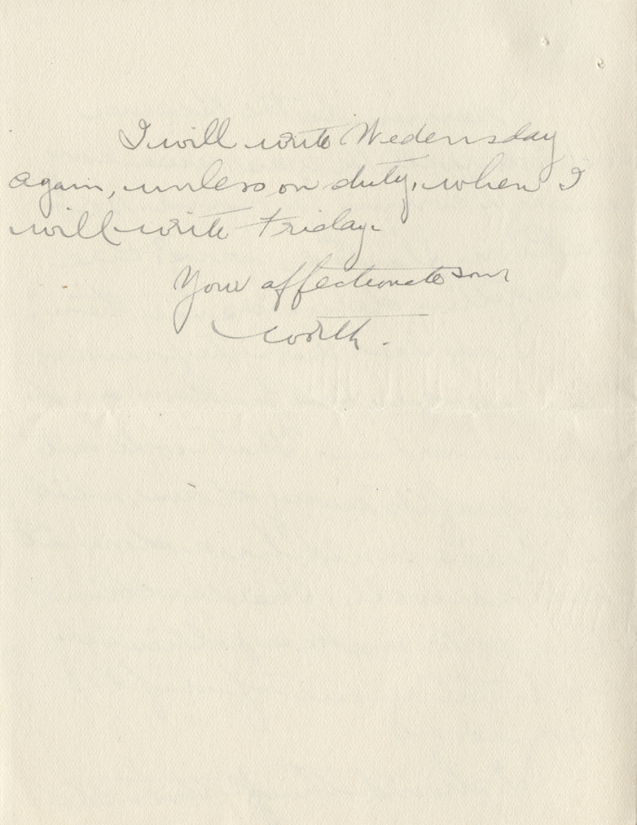 I will write Wedensday
again, unless on duty, when I
will write Friday.
Your affectionate son
Worth.